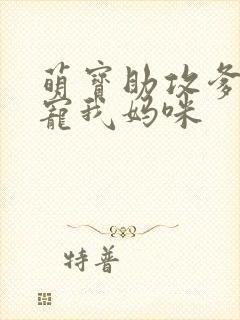 萌寶助攻爹
寵我媽咪
特普